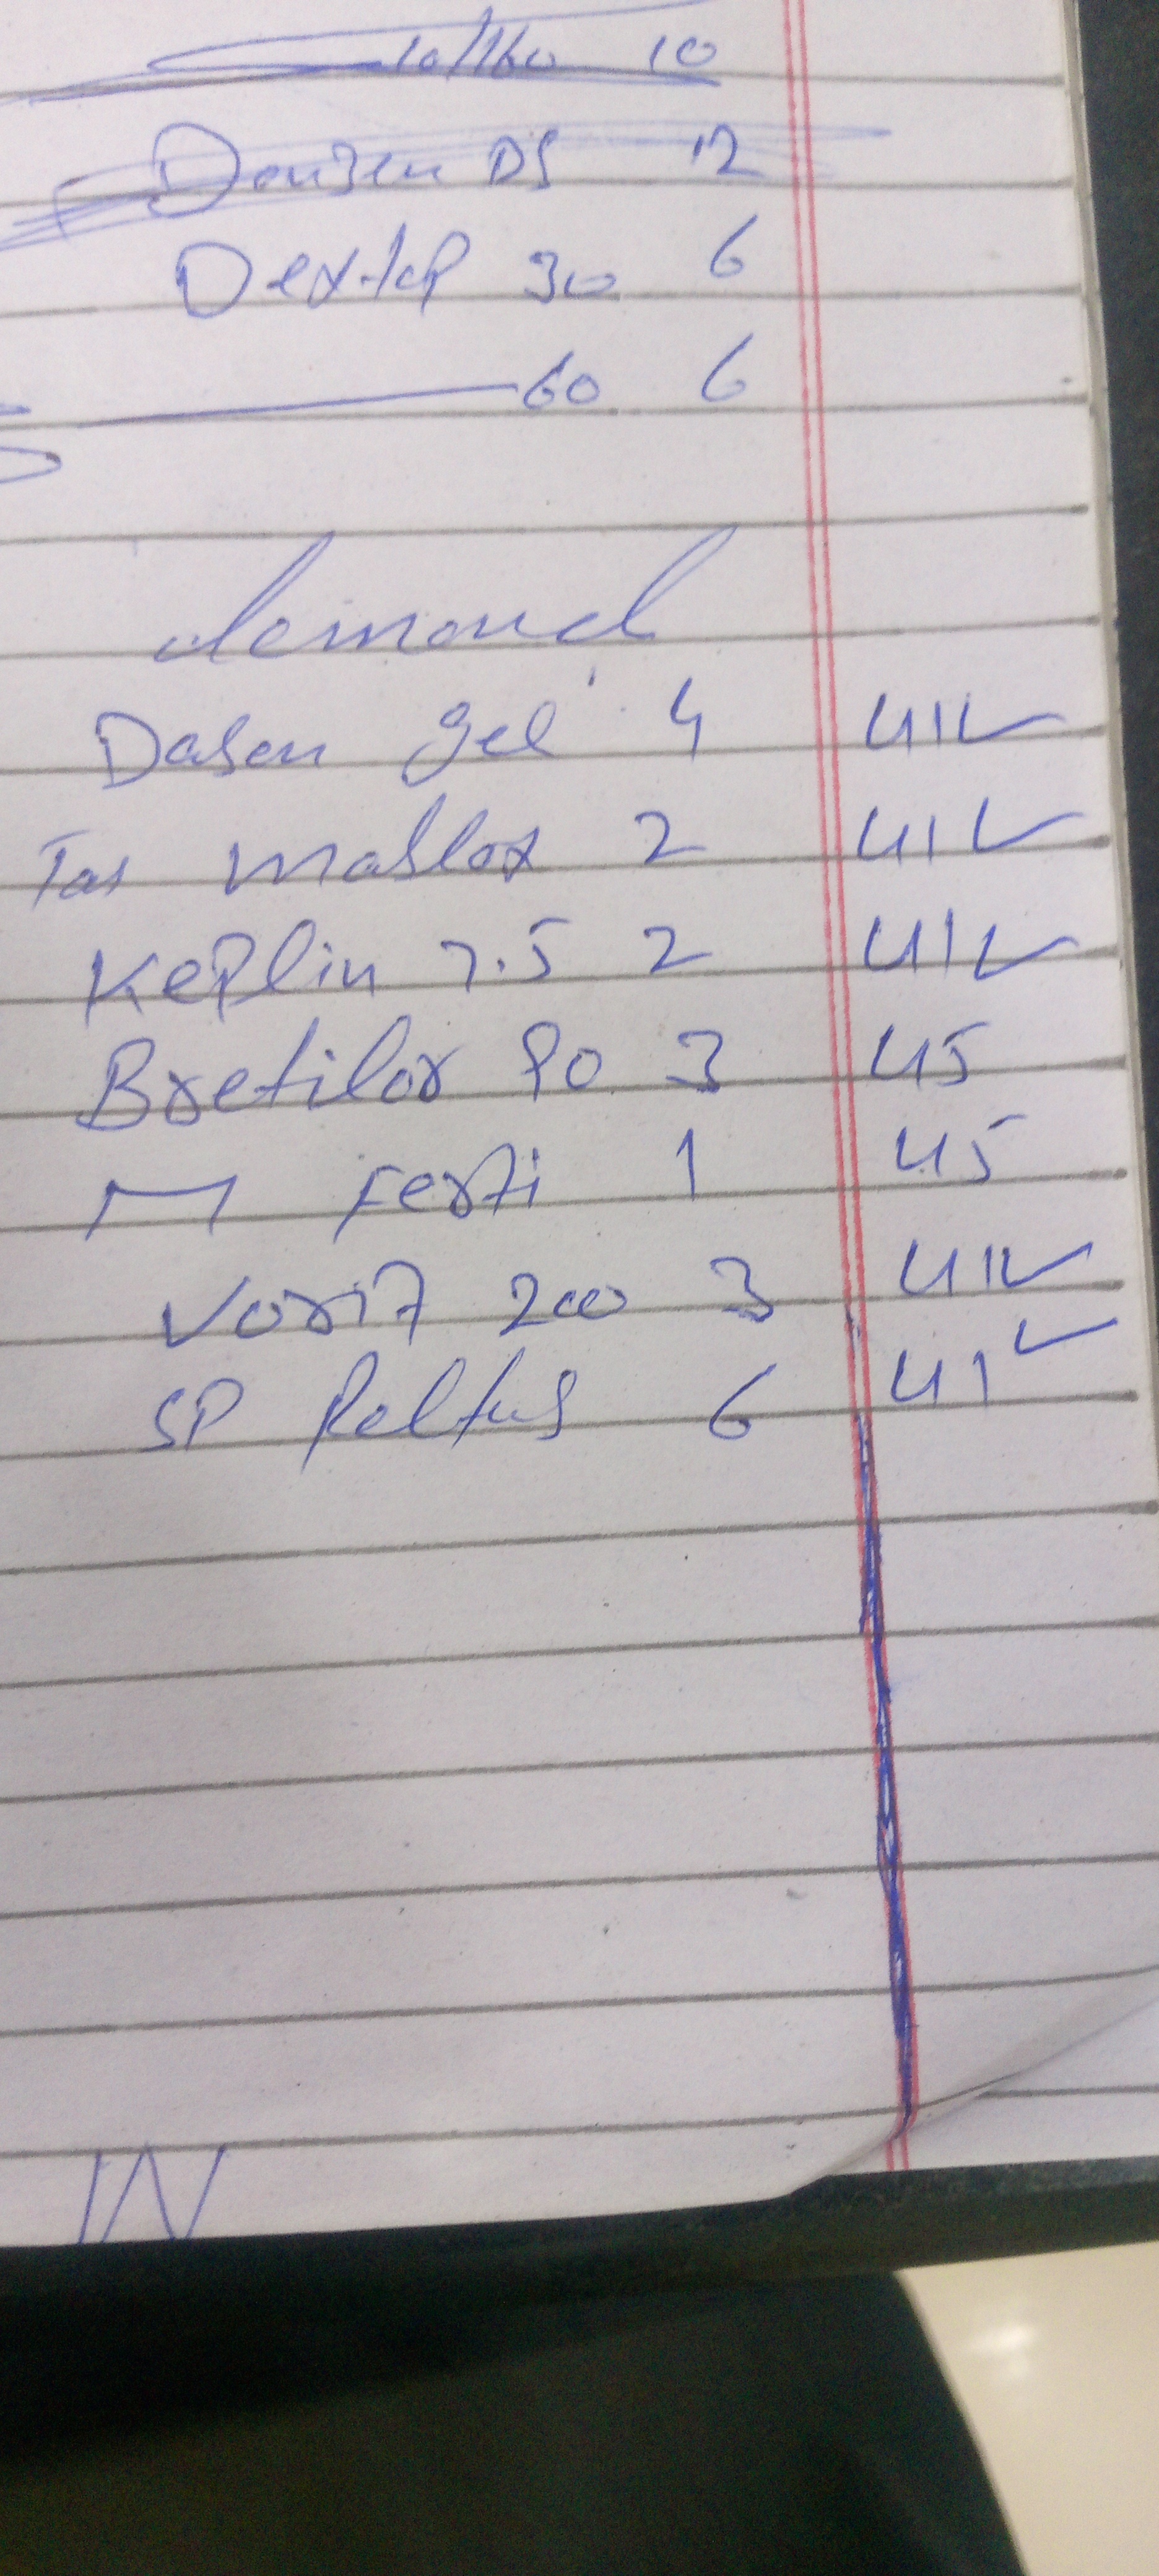 10/160 10
Danzen DS 12
Dextop 30 6
60 6
demand
Dasen gel 4 41 ✓
Tas maslox 2 41 ✓
Keplin 7.5 2 41 ✓
Bretilor 90 3 45
M Ferti 1 45
Vorif 200 3 41 ✓
SP Peltus 6 41 ✓